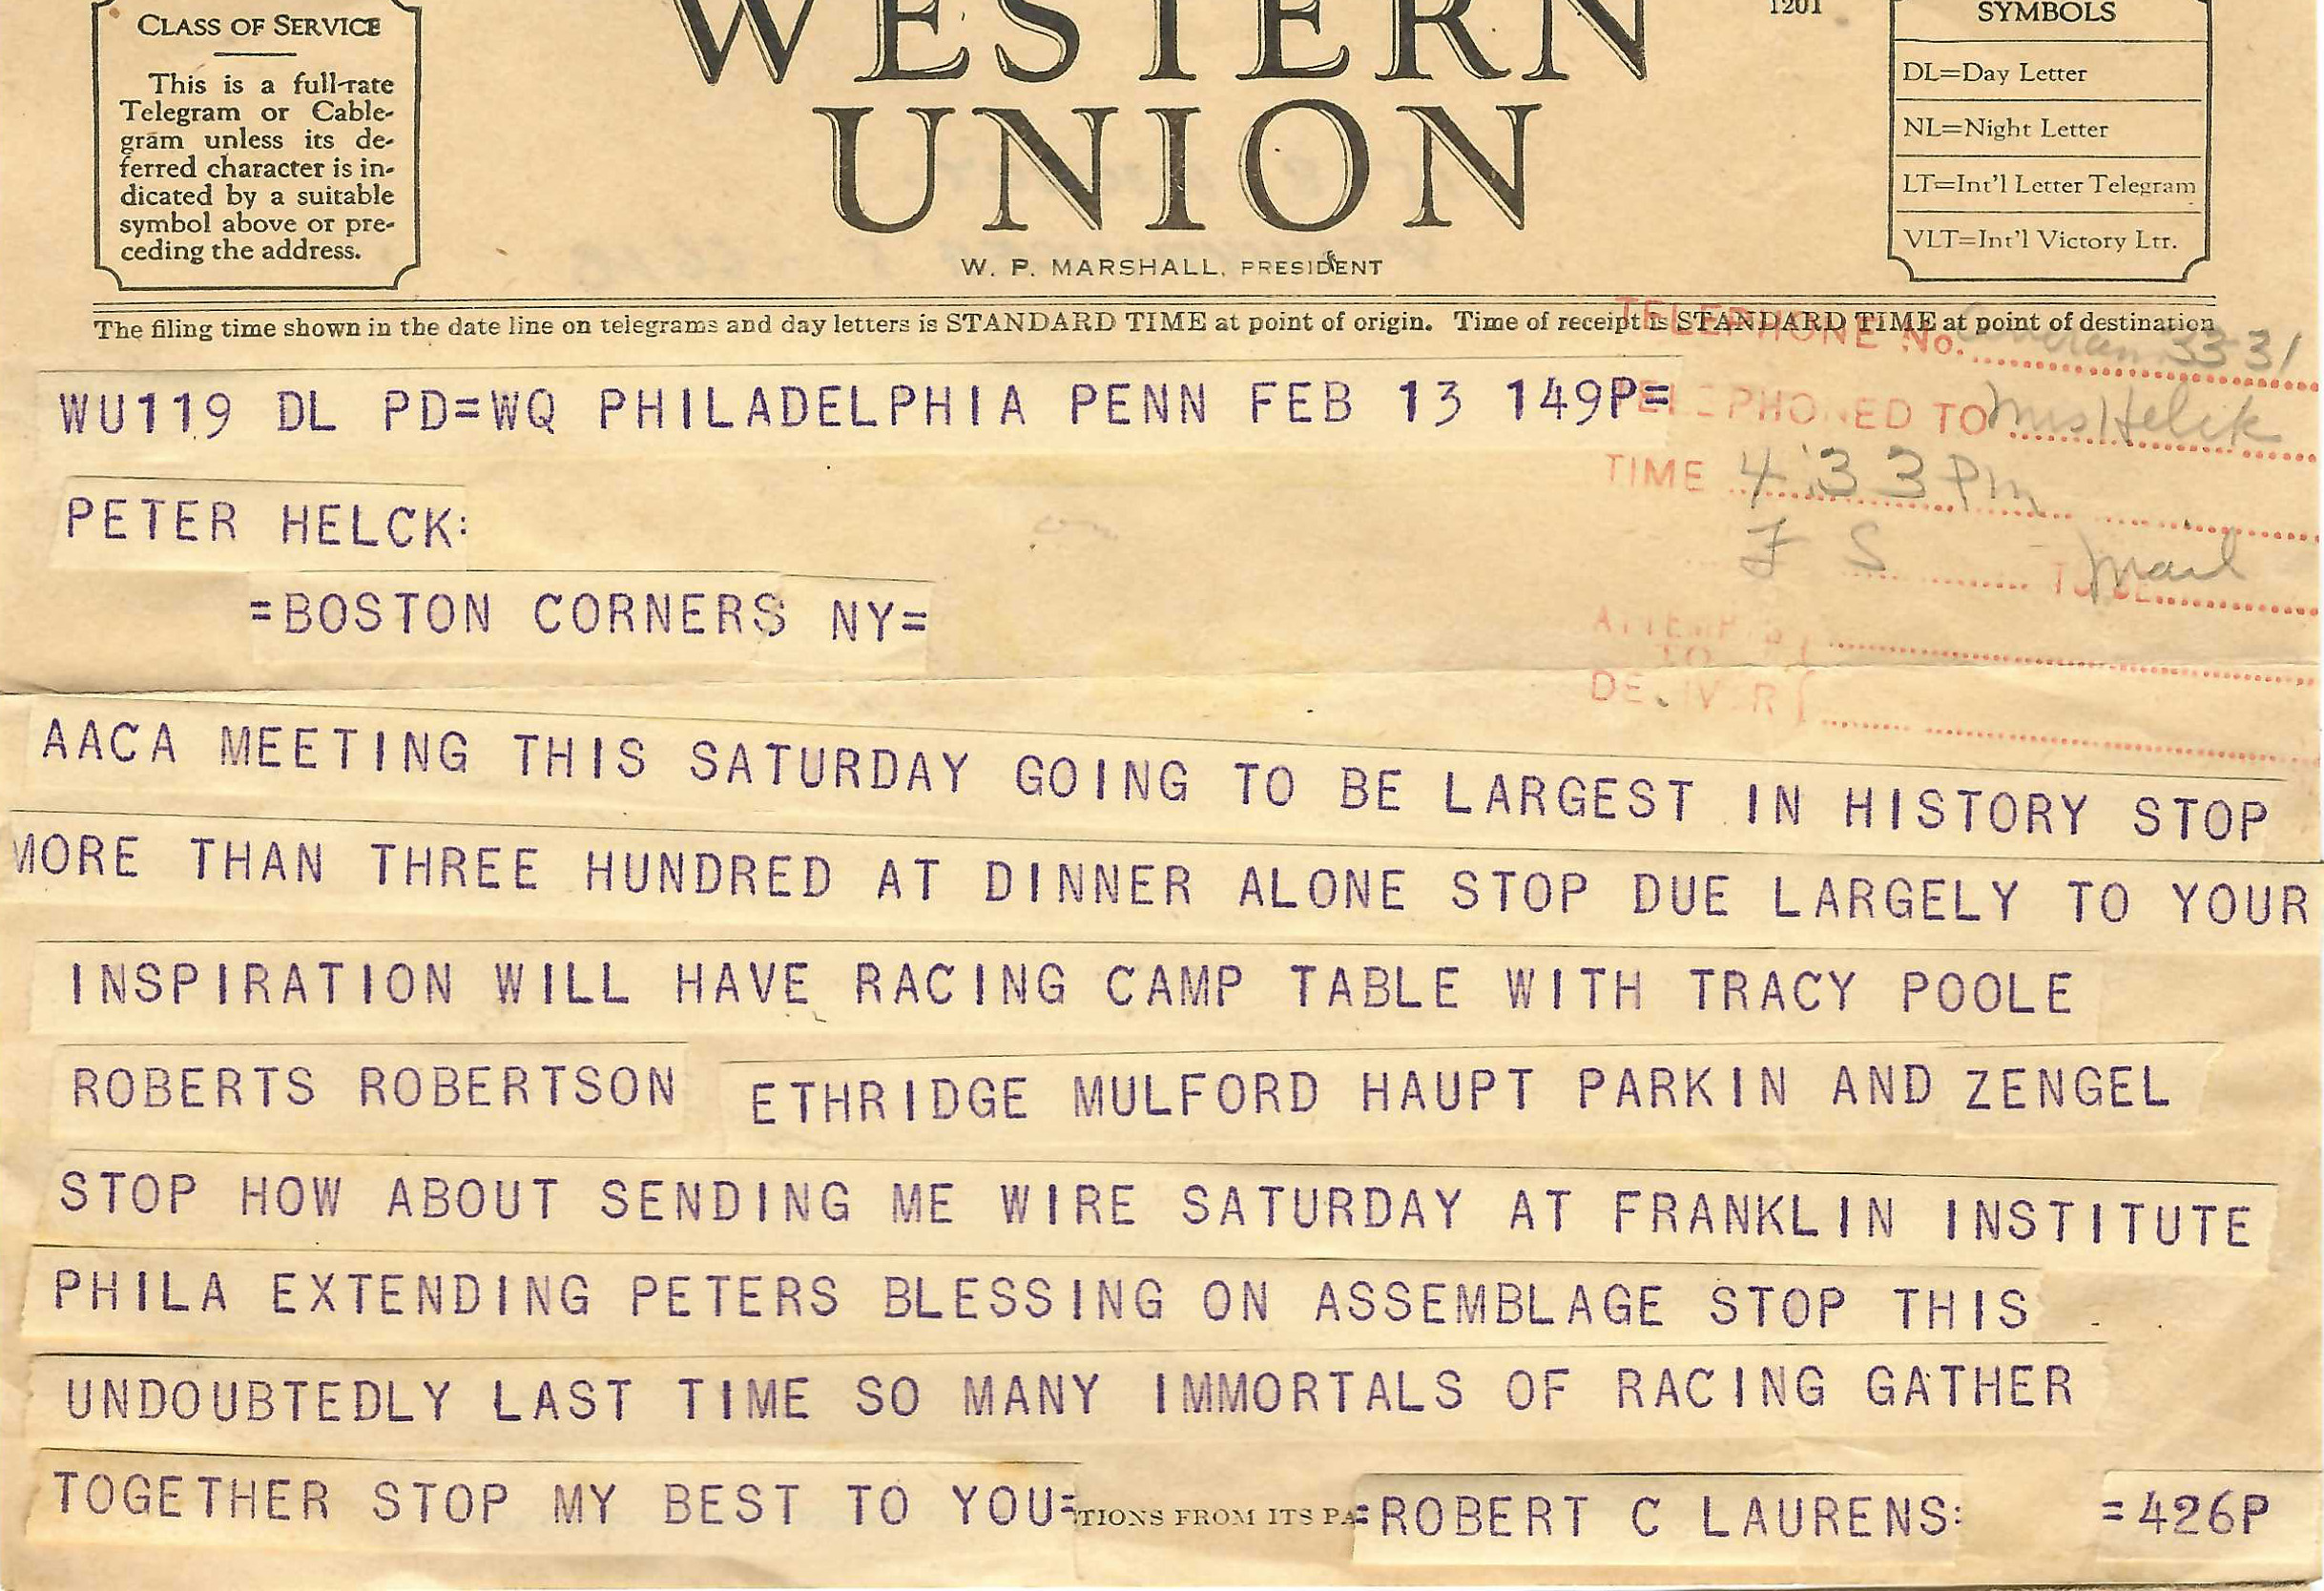 CLASS OF SERVICE
This is a full-rate
Telegram or Cable-
gram unless its de-
ferred character is in-
dicated by a suitable
symbol above or pre-
ceding the address.
WESTERN
UNION
W. P. MARSHALL, PRESIDENT
1201
SYMBOLS
DL=Day Letter
NL=Night Letter
LT=Int'l Letter Telegram
VLT=Int'l Victory Ltr.
The filing time shown in the date line on telegrams and day letters is STANDARD TIME at point of origin. Time of receipt is STANDARD TIME at point of destination
TELEPHONE No. 3331
TELEPHONED TO Mrs Helck
TIME 4:33 Pm
F S TO BE Mail
ATTEMPTS
TO
DELIVER
WU119 DL PD=WQ PHILADELPHIA PENN FEB 13 149P=
PETER HELCK:
=BOSTON CORNERS NY=
AACA MEETING THIS SATURDAY GOING TO BE LARGEST IN HISTORY STOP
MORE THAN THREE HUNDRED AT DINNER ALONE STOP DUE LARGELY TO YOUR
INSPIRATION WILL HAVE RACING CAMP TABLE WITH TRACY POOLE
ROBERTS ROBERTSON ETHRIDGE MULFORD HAUPT PARKIN AND ZENGEL
STOP HOW ABOUT SENDING ME WIRE SATURDAY AT FRANKLIN INSTITUTE
PHILA EXTENDING PETERS BLESSING ON ASSEMBLAGE STOP THIS
UNDOUBTEDLY LAST TIME SO MANY IMMORTALS OF RACING GATHER
TOGETHER STOP MY BEST TO YOU= TIONS FROM ITS PA =ROBERT C LAURENS: =426P